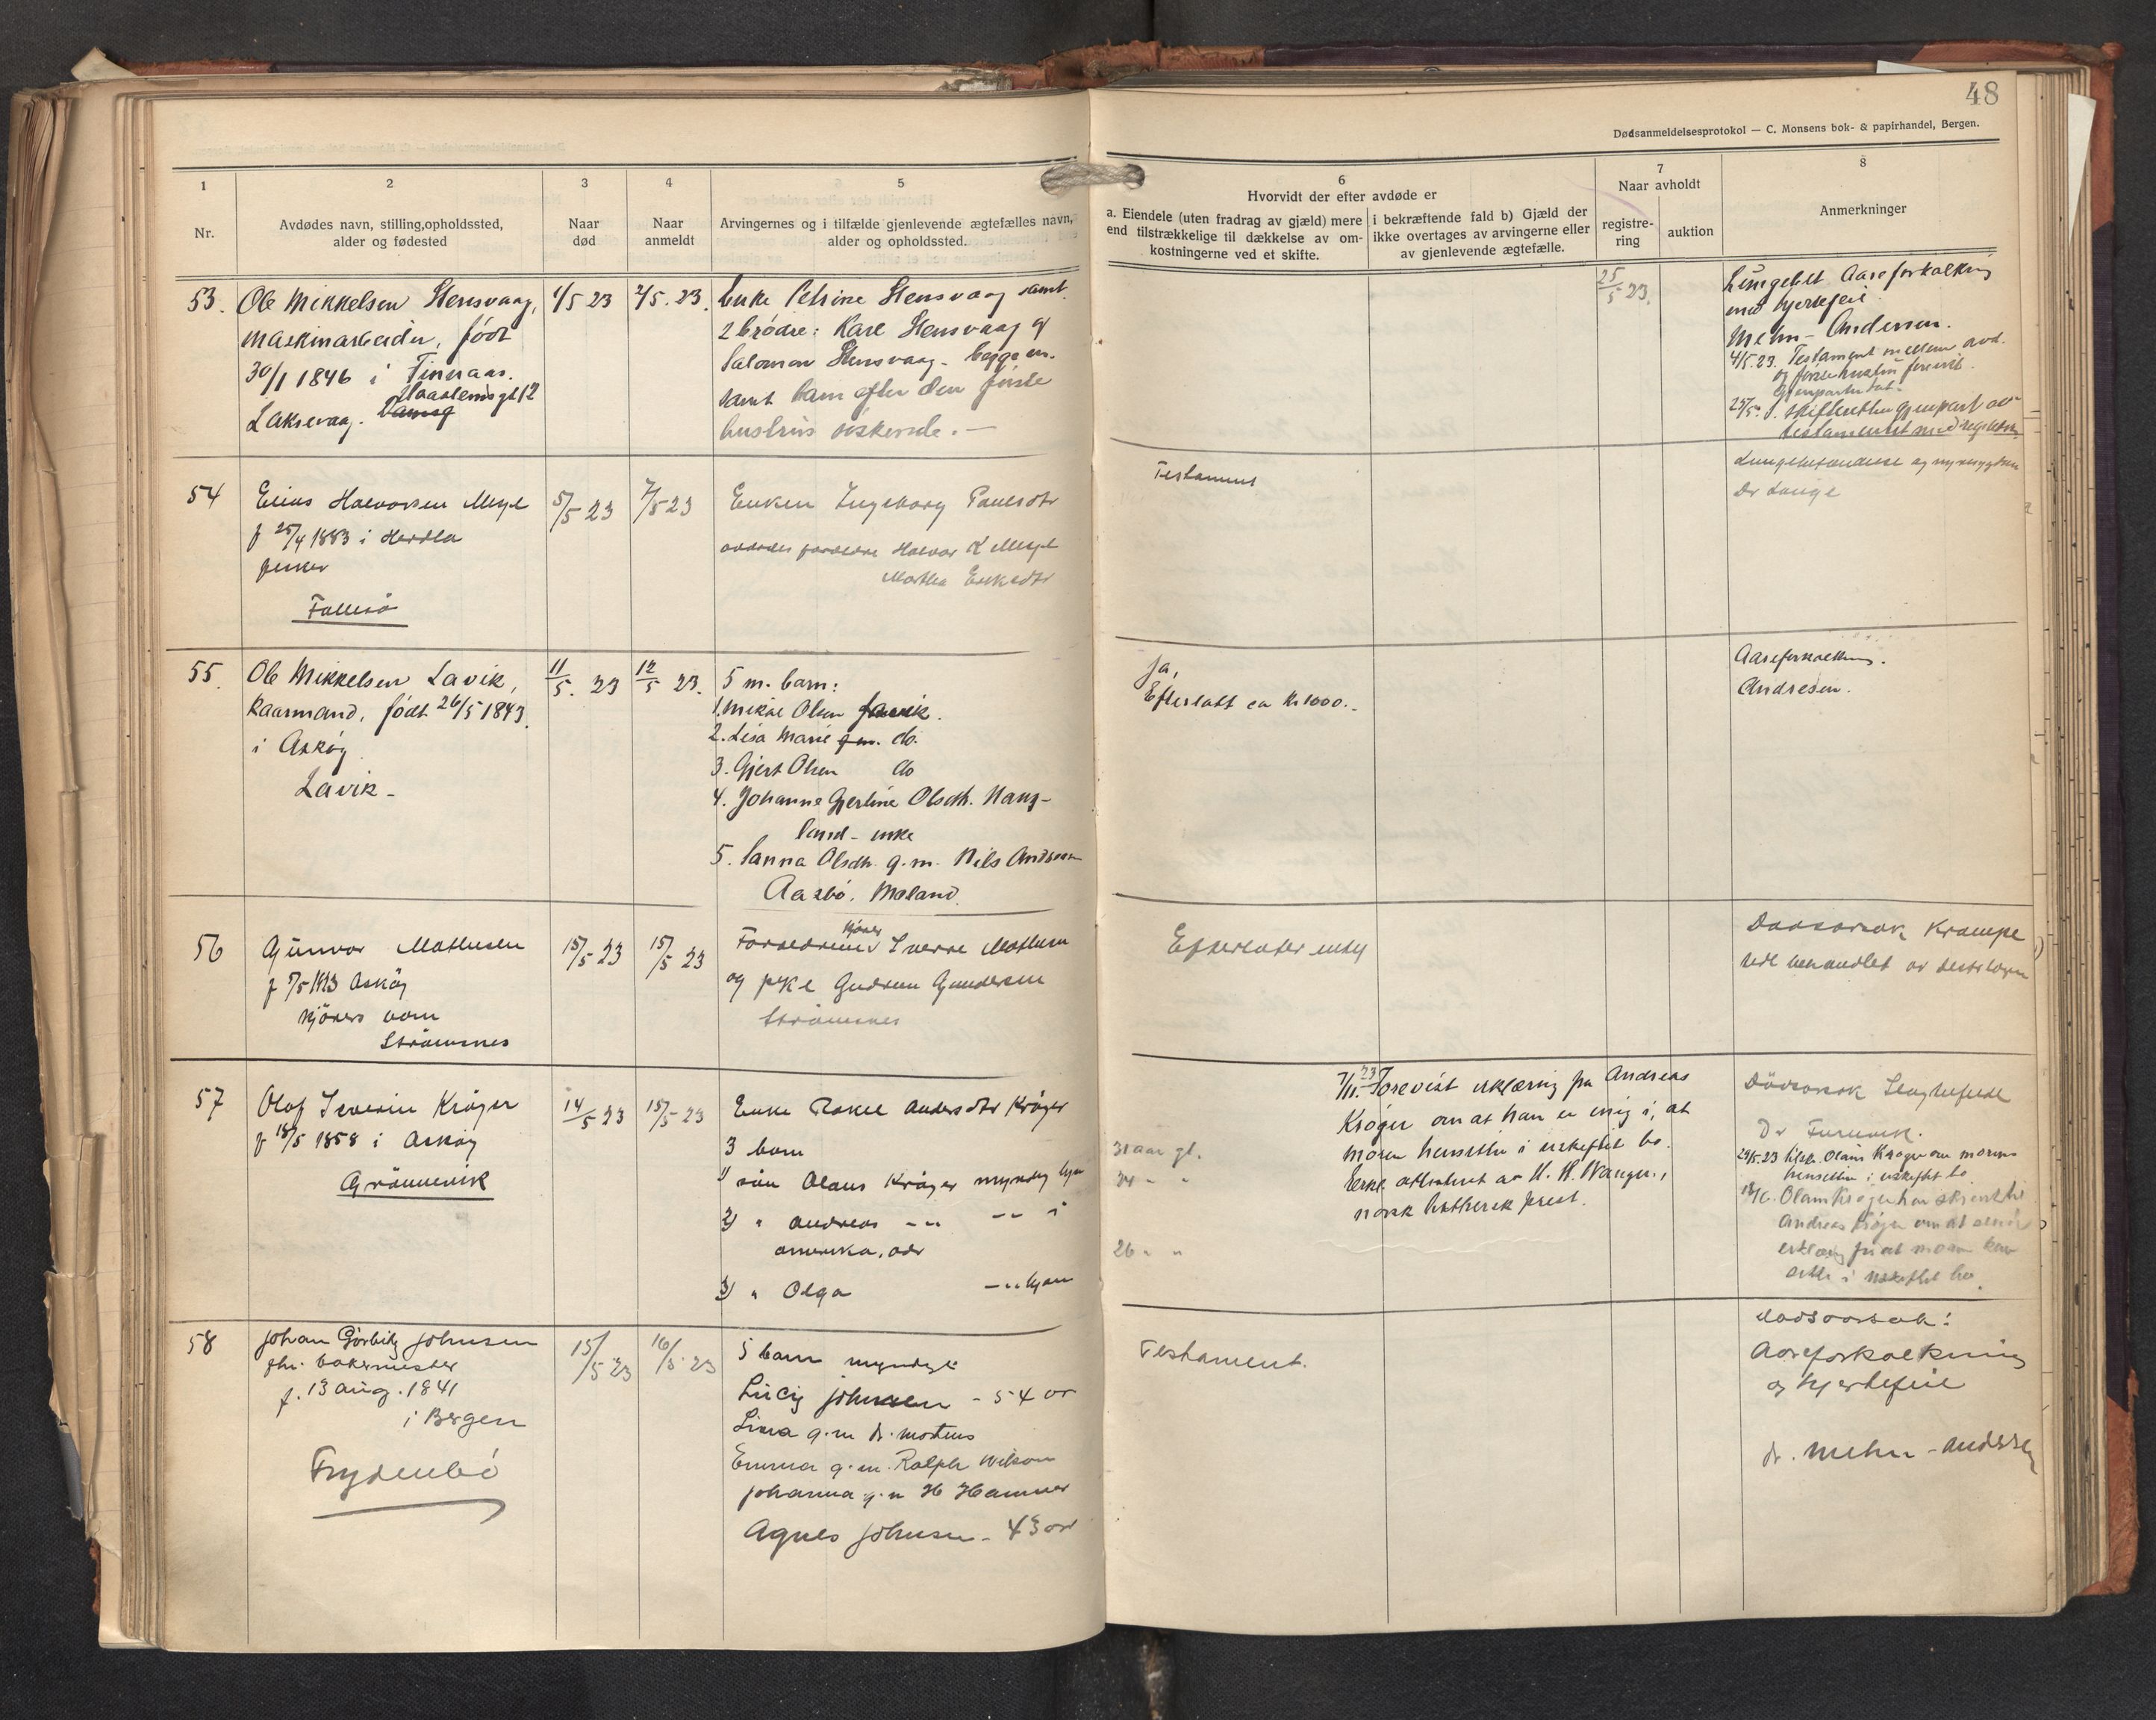 48
Dødsanmeldelsesprotokol — C. Monsens bok- & papirhandel, Bergen.
1
Nr.
2
Avdødes navn, stilling, opholdssted,
alder og fødested
3
Naar
død
4
Naar
anmeldt
5
Arvingernes og i tilfælde gjenlevende ægtefælles navn,
alder og opholdssted.
6
Hvorvidt der efter avdøde er
a. Eiendele (uten fradrag av gjæld) mere
end tilstrækkelige til dækkelse av om-
kostningerne ved et skifte.
i bekræftende fald b) Gjæld der
ikke overtages av arvingerne eller
av gjenlevende ægtefælle.
7
Naar avholdt
registre-
ring
auktion
8
Anmerkninger
53.
Ole Mikkelsen Stensvaag,
maskinarbeider, født
30/1 1846 i Finnaas.
Laksevaag.
1/5 23
2/5. 23.
Enke Petrine Stensvaag samt
2 brødre: Kare Stensvaag og
Salomon Stensvaag - begge
samt barn efter den første
hustrus søskende. —
25/5 23.
Aareforkalkning
med hjertefeil.
Mehn-Andersen.
4/5.23. Testament mellem avd.
og første hustru forevist.
Gjenpart
25/5. skifteretten gjenpart av
testamentet
54
Elias Halvorsen
f 25/4 1883 i Herdla
fisker
5/5 23
7/5 23
Enken Ingeborg Paulsdtr
avdødes forældre Halvor K
Martha
Testament
Lungebetændelse og nyresygdom
Dr Lange
55.
Ole Mikkelsen Lavik,
Kaarmand, født 26/5 1843.
i Askøy
Lavik -
11/5. 23
12/5 23.
5 m. barn:
1. Mikal Olsen Lavik.
2. Lisa Marie g.m. do.
3. Gjert Olsen do
4. Johanne Gjertine Olsdtr. Haug-
land - enke
5. Sanna Olsdtr. g.m. Nils Andersen
Aasbø, Mæland.
Ja,
Efterlatt ca Kr 1000.-
Aareforkalkning.
Andresen.
56
Gunvor Mathisen
f 7/5 1923 Askøy
kjørers barn
Strømsnes
15/5 23
15/5 23
Forældrene kjører Sverre Mathisen
og pike Gudrun Gundersen
Strømsnes
Efterlater intet
Dødsårsak Krampe
ikke behandlet av
57
Olaf Severin Krøger
f 18/5 1858 i Askøy
Grønnevik
14/5 23
15/5 23
Enke Rakel Andersdtr Krøger
3 barn
1) søn Olaus Krøger myndig hjm
2) " Andreas -"- -"- i
Amerika, adr
3) " Olga -"- hjm
31 aar gl.
34 " "
26 " "
7/11. 23 Forevist erklæring fra Andreas
Krøger om at han er enig i, at
moren hensitter i uskiftet bo.
Erkl. attesteret av
norsk luthersk prest.
Dødsårsak Slagtilfelde
Dr
29/5.23 tilst. Olaus Krøger om morens
hensitten i uskiftet bo
18/6. Olaus Krøger har skrevet til
Andreas Krøger om at sende
erklæring for at moren kan
sitte i uskiftet bo.
58
Johan Gørbitz Johnsen
fhv. bakermester
f. 13 aug. 1841
i Bergen
Frydenbø
15/5 23
16/5 23
5 barn myndige
Lucy Johnsen - 54 år
Lina g.m dr. Martens
Emma g.m. Ralph Wilson
Johanna g.m H Hammer
Agnes Johnsen - 43 år
Testament.
Dødsårsak:
Aareforkalkning
og hjertefeil
dr. Mehn-Andersen